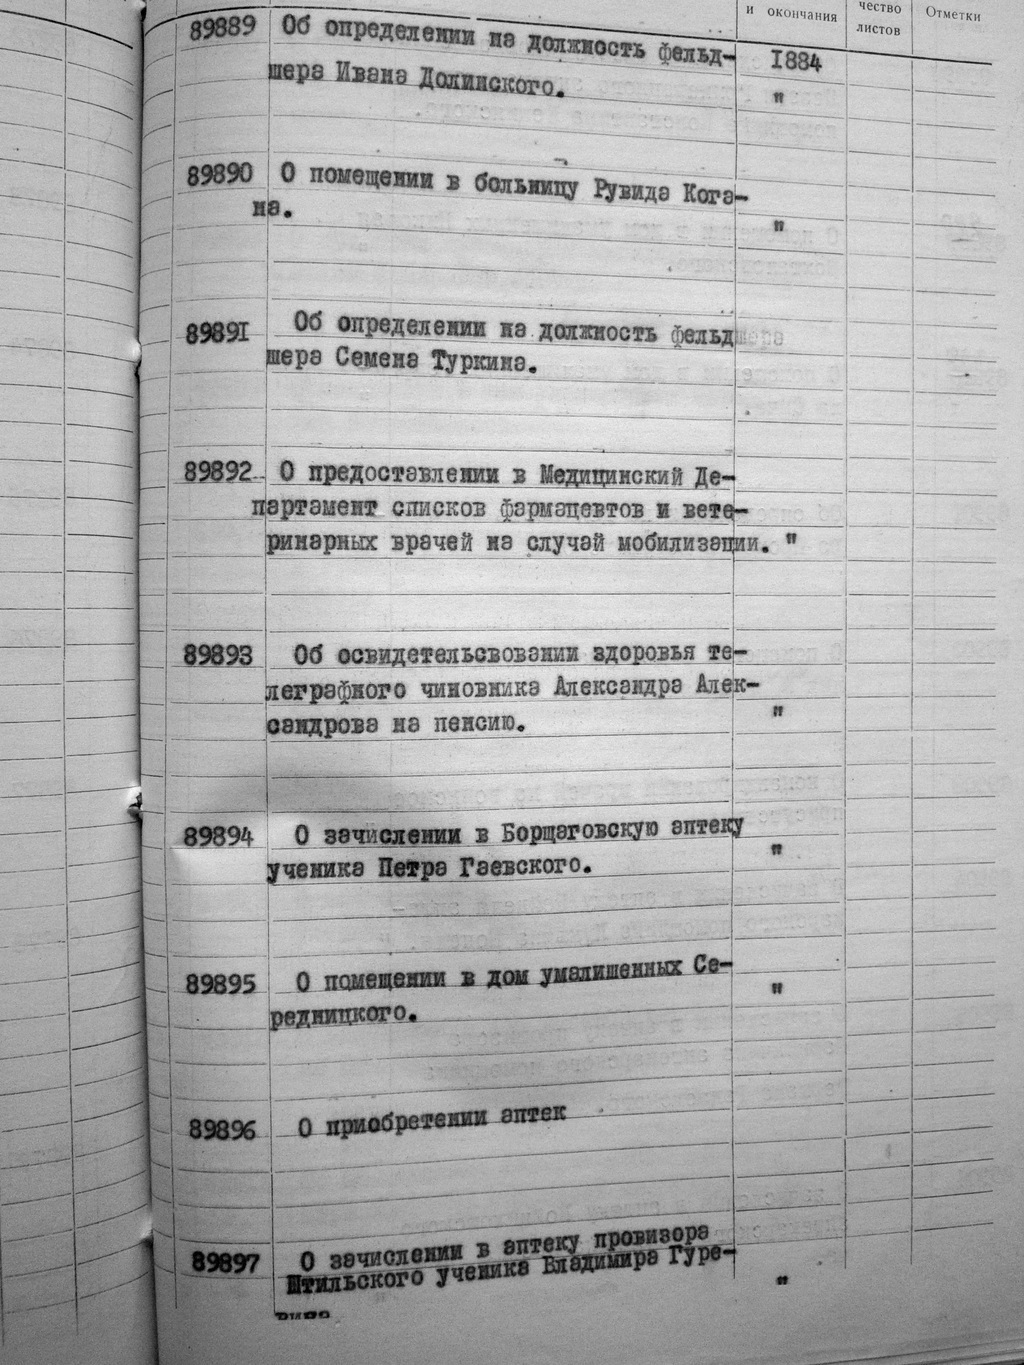 и окончания
чество
листов
Отметки
89889 Об определении на должность фельд- 1884
шера Ивана Долинского. "
89890 О помещении в больницу Рувида Кога-
на. "
89891 Об определении на должность фельдшера
шера Семена Туркина.
89892 О предоставлении в Медицинский Де-
партамент списков фармацевтов и вете-
ринарных врачей на случай мобилизации. "
89893 Об освидетельсвовании здоровья те-
леграфного чиновника Александра Алек-
сандрова на пенсию. "
89894 О зачислении в Борщаговскую аптеку
ученика Петра Гаевского. "
89895 О помещении в дом умалишенных Се-
редницкого. "
89896 О приобретении аптек
89897 О зачислении в аптеку провизора
Штильского ученика Владимира Гуре- "